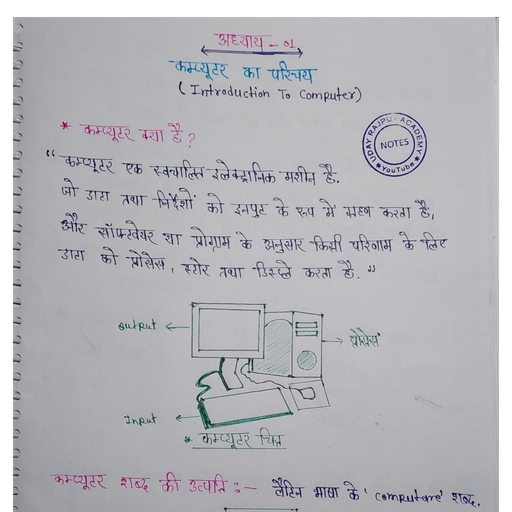 अध्याय - 01
कम्प्यूटर का परिचय
( Introduction To Computer)
* कम्प्यूटर क्या है ?
UDAY RAJPUT ACADEMY
NOTES
★ YouTube ★
“ कम्प्यूटर एक स्वचालित इलेक्ट्रानिक मशीन है.
जो डाटा तथा निर्देशों को इनपुट के रूप में ग्रहण करता है,
और सॉफ्टवेयर या प्रोग्राम के अनुसार किसी परिणाम के लिए
डाटा को प्रोसेस, स्टोर तथा डिस्प्ले करता है. ”
output
प्रोसेस
Input
* कम्प्यूटर चित्र
कम्प्यूटर शब्द की उत्पत्ति :- लैटिन भाषा के ' computare' शब्द,